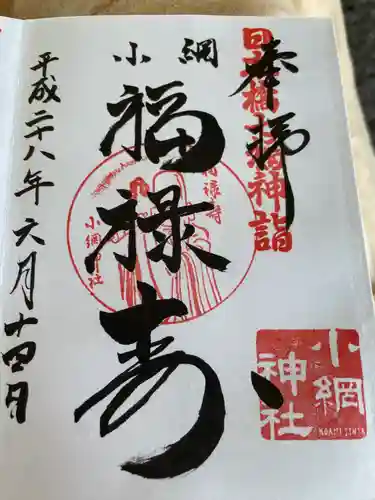 奉拝
日本橋七福神詣
小網
福禄寿
福禄寿
小網神社
小網
神社
KOAMI JINJA
平成二十八年六月十四日